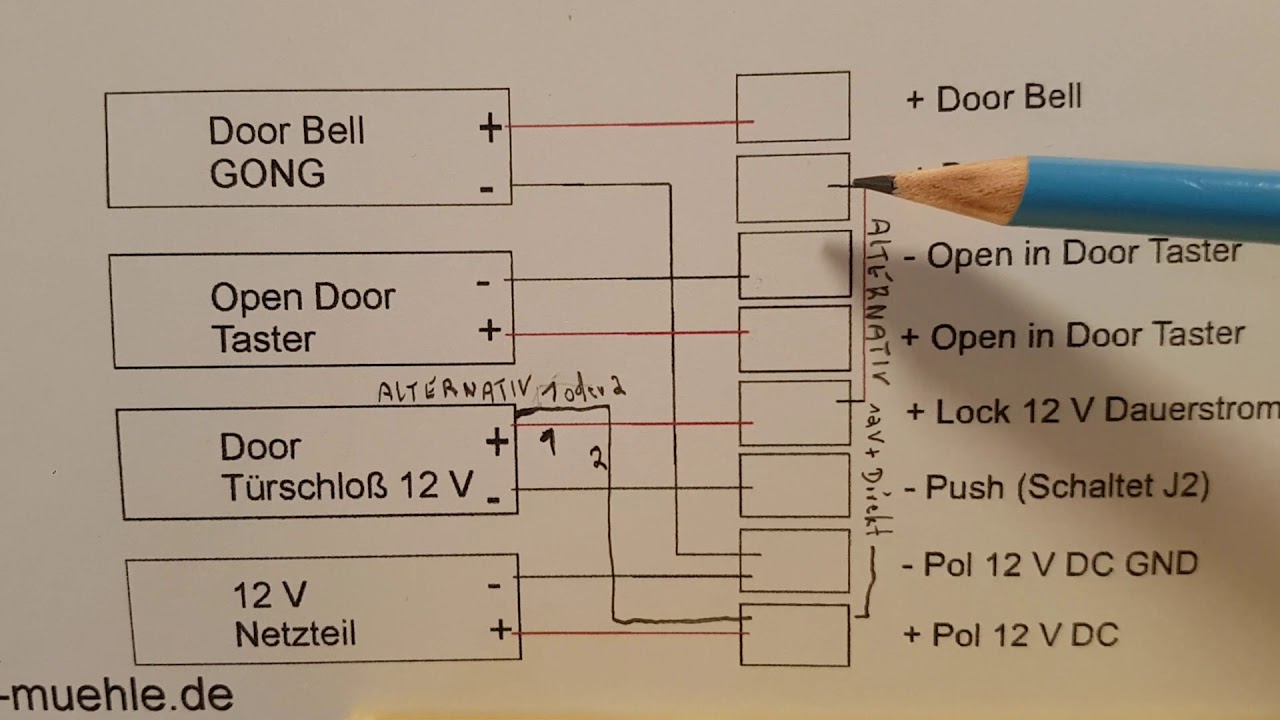 Door Bell
GONG
+
-
+ Door Bell
Open Door
Taster
-
+
- Open in Door Taster
+ Open in Door Taster
ALTERNATIV 1 oder 2
ALTERNATIV 12V + Direkt
Door
Türschloß 12 V
+
-
1
2
+ Lock 12 V Dauerstrom
- Push (Schaltet J2)
12 V
Netzteil
-
+
- Pol 12 V DC GND
+ Pol 12 V DC
-muehle.de